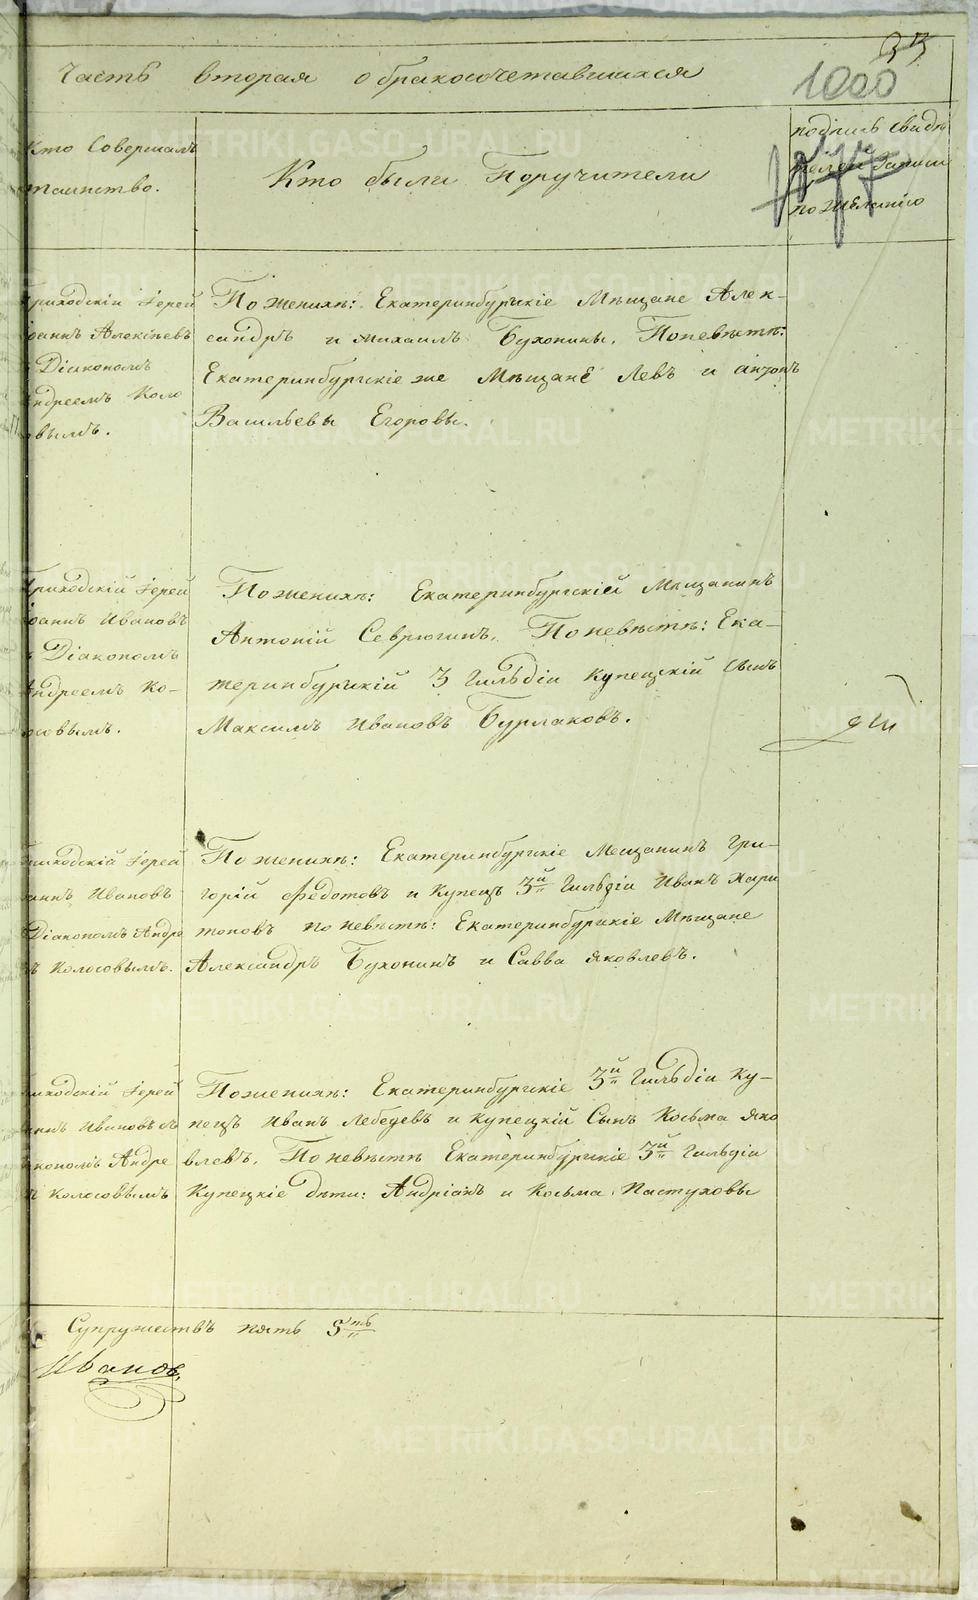 33
Часть вторая о бракосочетавшихся
1000
Кто Совершалъ
таинство.
Кто были Поручители
подпись свидѣ
телей записи
по желанію
Приходскій Іерей
Іоаннъ Алексѣевъ
Діакономъ
Андреемъ Коло
овымъ.
По женихѣ: Екатеринбургскіе Мѣщане Алек-
сандръ и Михаилъ Бухонины, По невѣстѣ:
Екатеринбургскіе же Мѣщане Левъ и Антонъ
Васильевы Егоровы.
Приходскій Іерей
Іоаннъ Ивановъ
Діакономъ
Андреемъ Ко-
лосовымъ.
По женихѣ: Екатеринбургскій Мѣщанинъ
Антоній Севрюгинъ, По невѣстѣ: Ека-
теринбургскій 3 Гильдіи Купецкій Сынъ
Максимъ Ивановъ Бурлаковъ.
Приходскій Іерей
Іоаннъ Ивановъ
Діакономъ Андре
ъ Колосовымъ.
По женихѣ: Екатеринбургскіе Мещанинъ Гри-
горій Федотовъ и Купецъ 3й Гильдіи Иванъ Хари
тоновъ по невѣстѣ: Екатеринбургскіе Мѣщане
Александръ Бухонинъ и Савва Яковлевъ.
Приходскій Іерей
Іоаннъ Ивановъ съ
Діакономъ Андре
Колосовымъ
По женихѣ: Екатеринбургскіе 3й Гильдіи Ку-
пецъ Иванъ Лебедевъ и Купецкій Сынъ Косьма Яко
влевъ, По невѣстѣ Екатеринбургскіе 3й Гильдіи
Купецкіе дѣти: Андріанъ и Косьма Пастуховы
Супружествъ пять 5ть
Ивановъ
METRIKI.GASO-URAL.RU